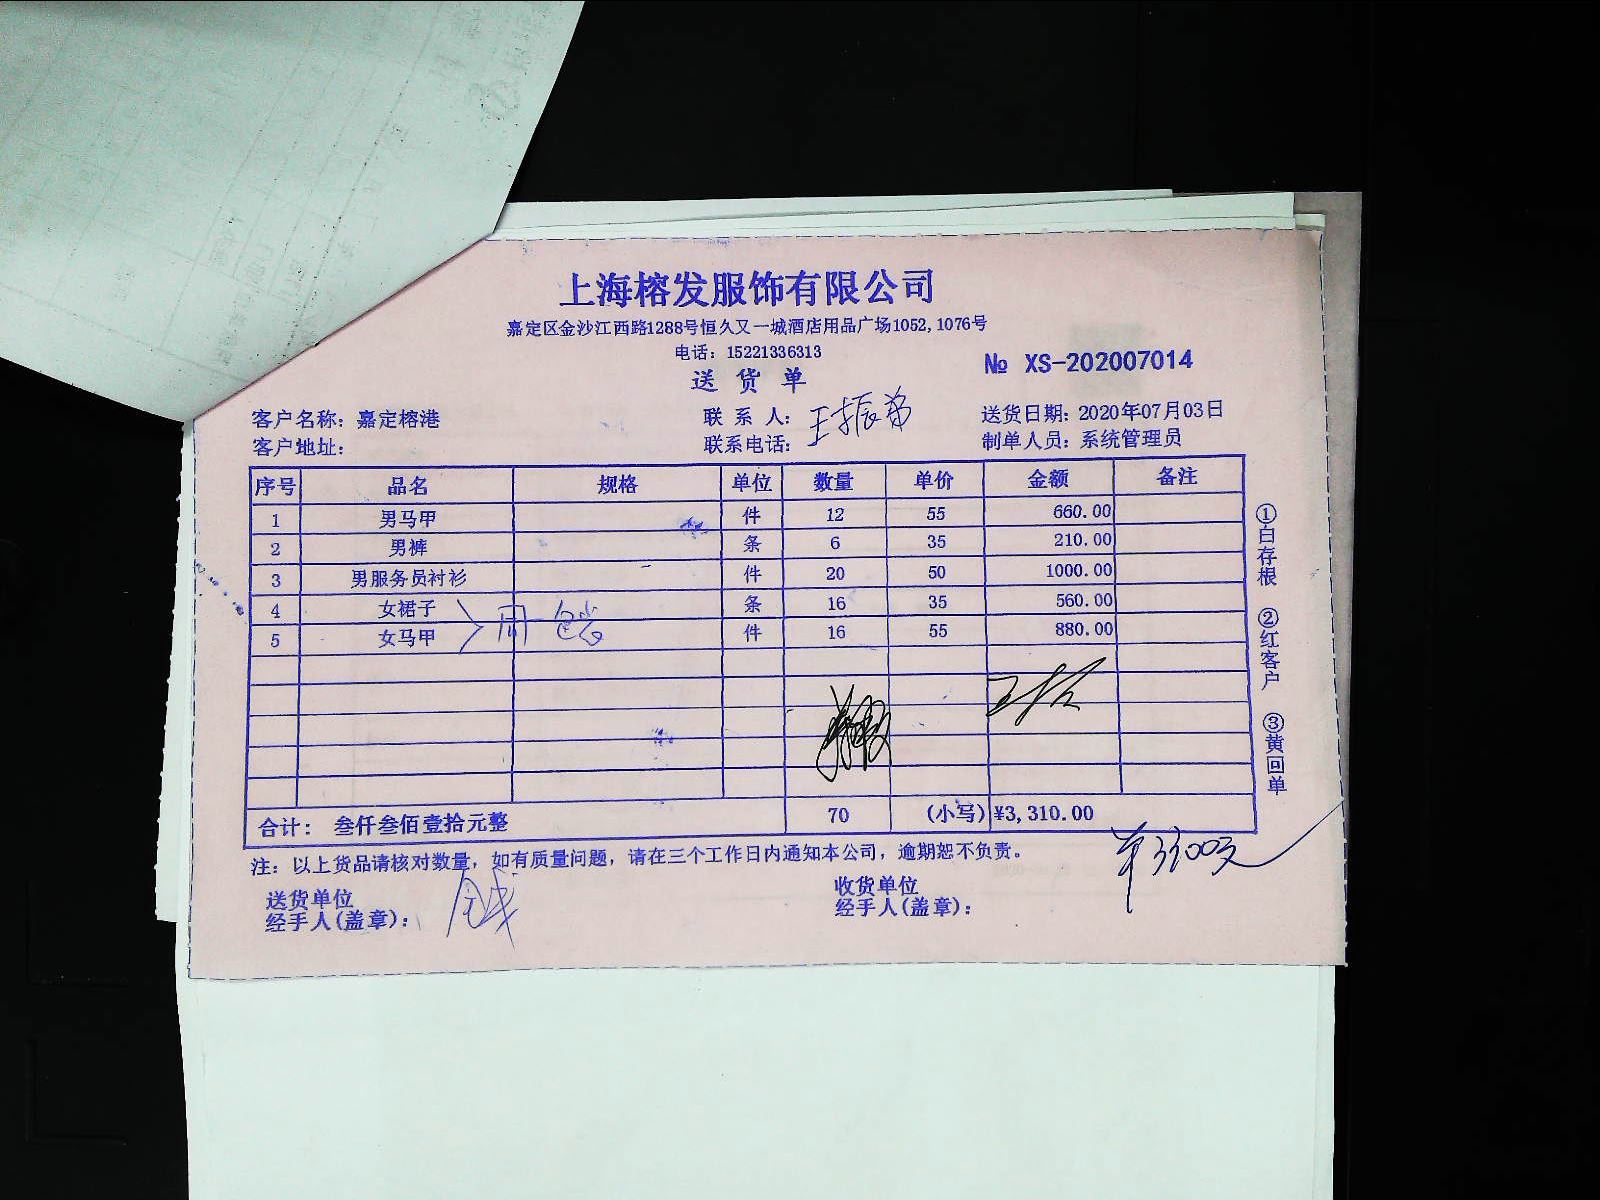 上海榕发服饰有限公司
嘉定区金沙江西路1288号恒久又一城酒店用品广场1052,1076号
电话：15221336313
送货单
№ XS-202007014
客户名称：嘉定榕港 联系人：王振弟 送货日期：2020年07月03日
客户地址： 联系电话： 制单人员：系统管理员
序号 品名 规格 单位 数量 单价 金额 备注
1 男马甲 件 12 55 660.00
2 男裤 条 6 35 210.00
3 男服务员衬衫 件 20 50 1000.00
4 女裙子 条 16 35 560.00
5 女马甲 件 16 55 880.00
合计： 叁仟叁佰壹拾元整 70 (小写) ¥3,310.00
注：以上货品请核对数量，如有质量问题，请在三个工作日内通知本公司，逾期恕不负责。
送货单位
经手人(盖章)：
收货单位
经手人(盖章)：
①白存根 ②红客户 ③黄回单